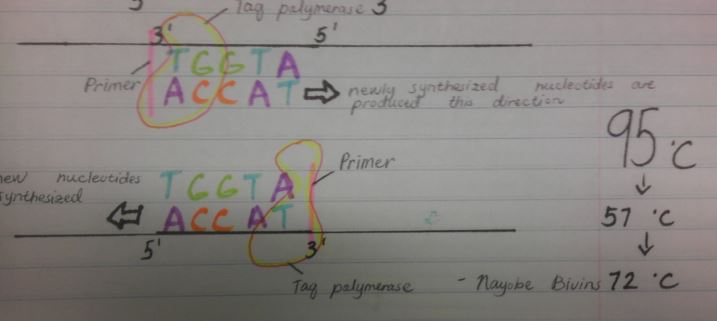 Taq polymerase 3'
3' 5'
TGGTA
Primer
ACCAT
newly synthesized nucleotides are
produced this direction
95 °C
Primer
new nucleotides
synthesized
TGGTA
ACCAT
57 °C
5' 3'
Taq polymerase
- Nayobe Bivins
72 °C